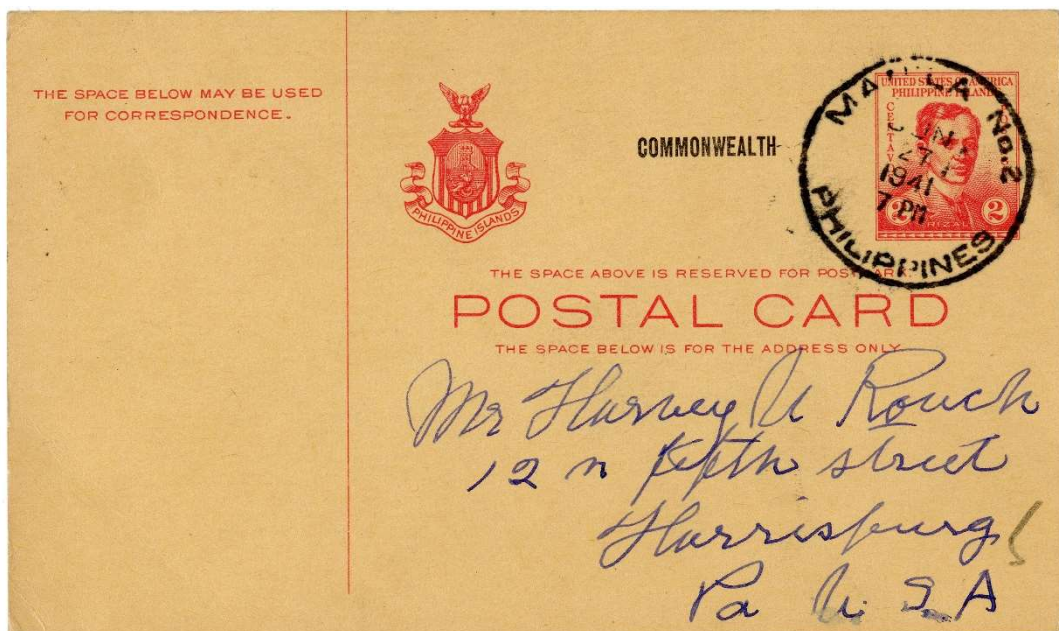 THE SPACE BELOW MAY BE USED
FOR CORRESPONDENCE.
PHILIPPINE ISLANDS
COMMONWEALTH
UNITED STATES OF AMERICA
PHILIPPINE ISLANDS
CENTAVOS
2 2
RIZAL
MANILA No.2
JUN
27
1941
7 PM
PHILIPPINES
THE SPACE ABOVE IS RESERVED FOR POSTMARK.
POSTAL CARD
THE SPACE BELOW IS FOR THE ADDRESS ONLY
Mr Harvey U Rouch
12 n fifth street
Harrisburg
Pa U. S. A